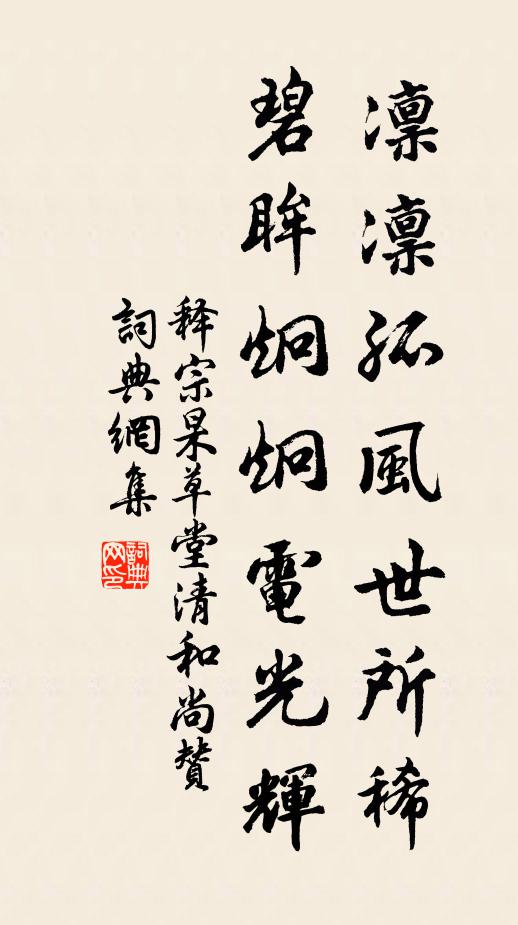 凜凜孤風世所稀
碧眸炯炯電光輝
释宗杲草堂清和尚贊
詞典網集
詞典网印